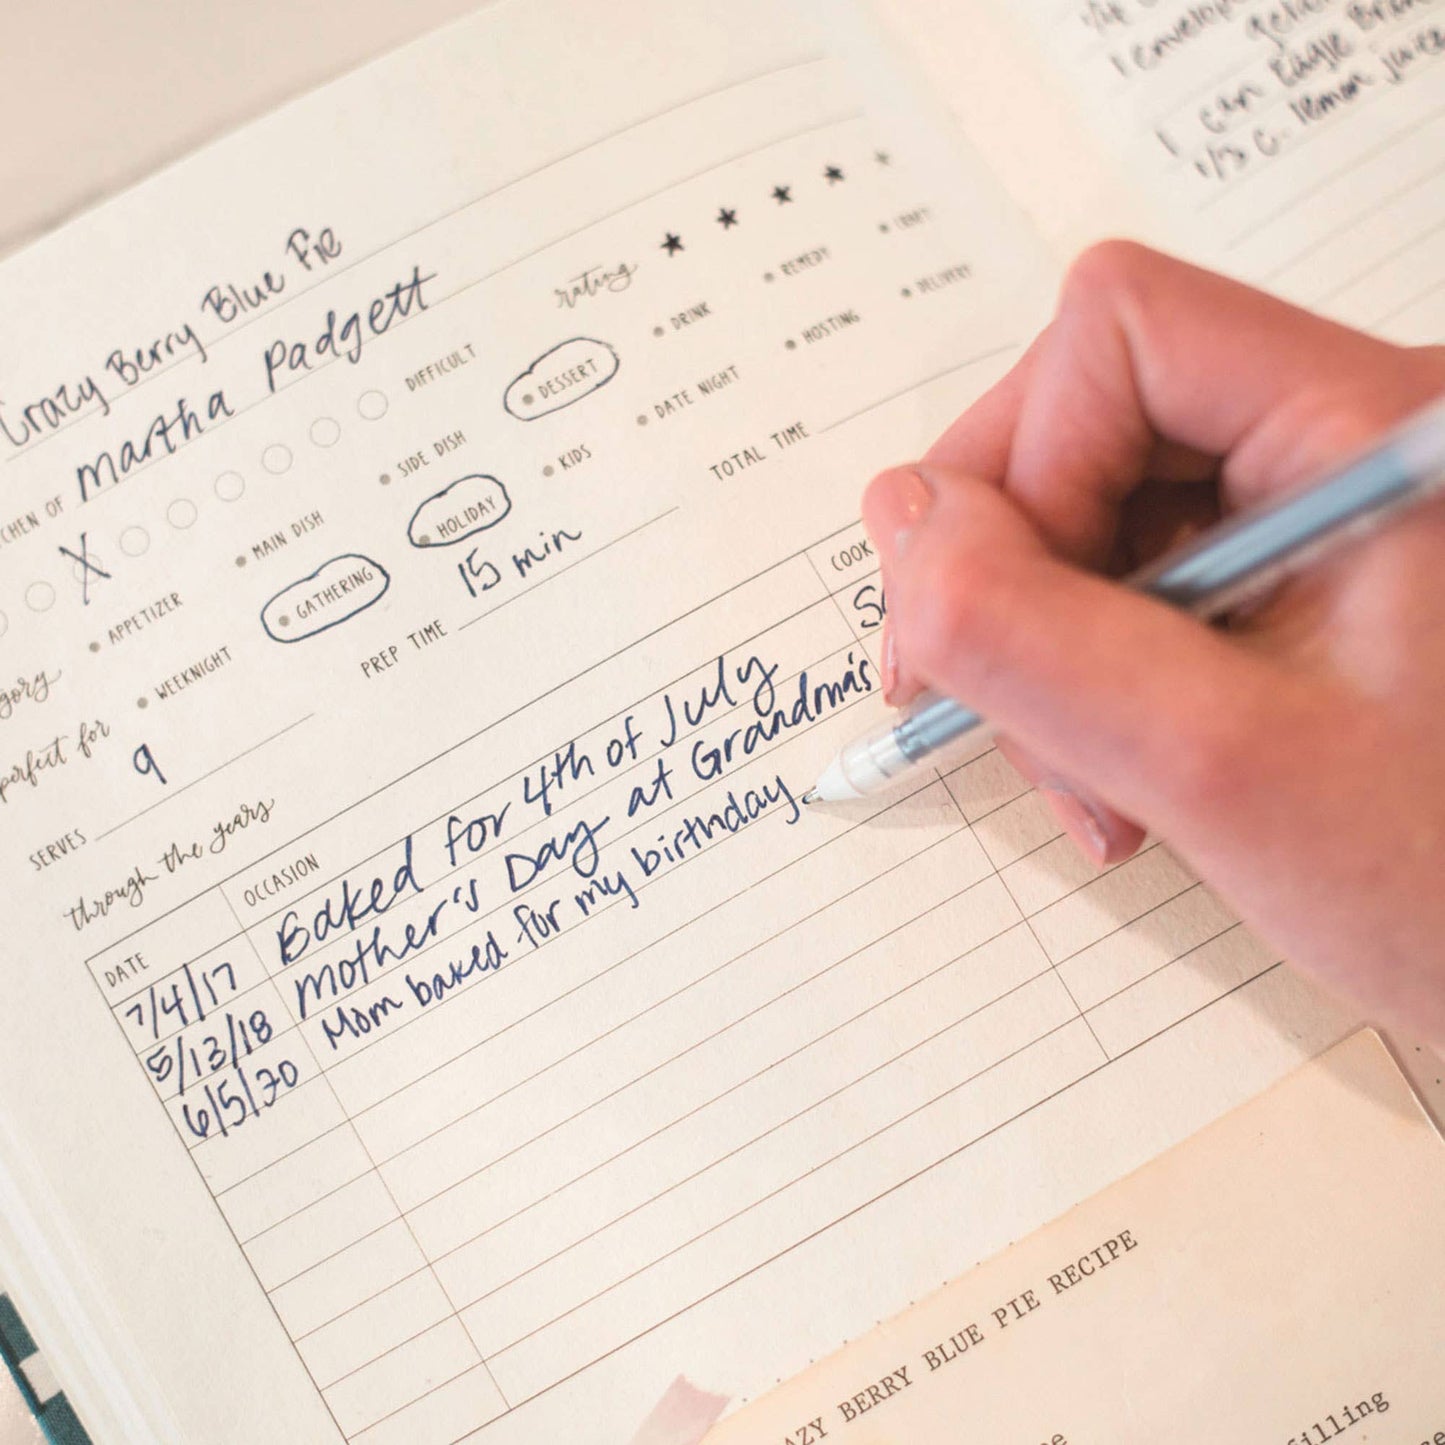 Crazy Berry Blue Pie
KITCHEN OF Martha Padgett
rating ★ ★ ★ ★ ★
X DIFFICULT
• APPETIZER • MAIN DISH • SIDE DISH • DESSERT • DRINK • REMEDY • CRAFT
perfect for • WEEKNIGHT • GATHERING • HOLIDAY • KIDS • DATE NIGHT • HOSTING • DELIVERY
SERVES 9 PREP TIME 15 min TOTAL TIME
through the years
DATE OCCASION COOK
7/4/17 Baked for 4th of July
5/13/18 Mother's Day at Grandma's
6/5/20 Mom baked for my birthday.
1 envelope
1 can Eagle Bran
1/3 c. lemon juice
AZY BERRY BLUE PIE RECIPE
filling